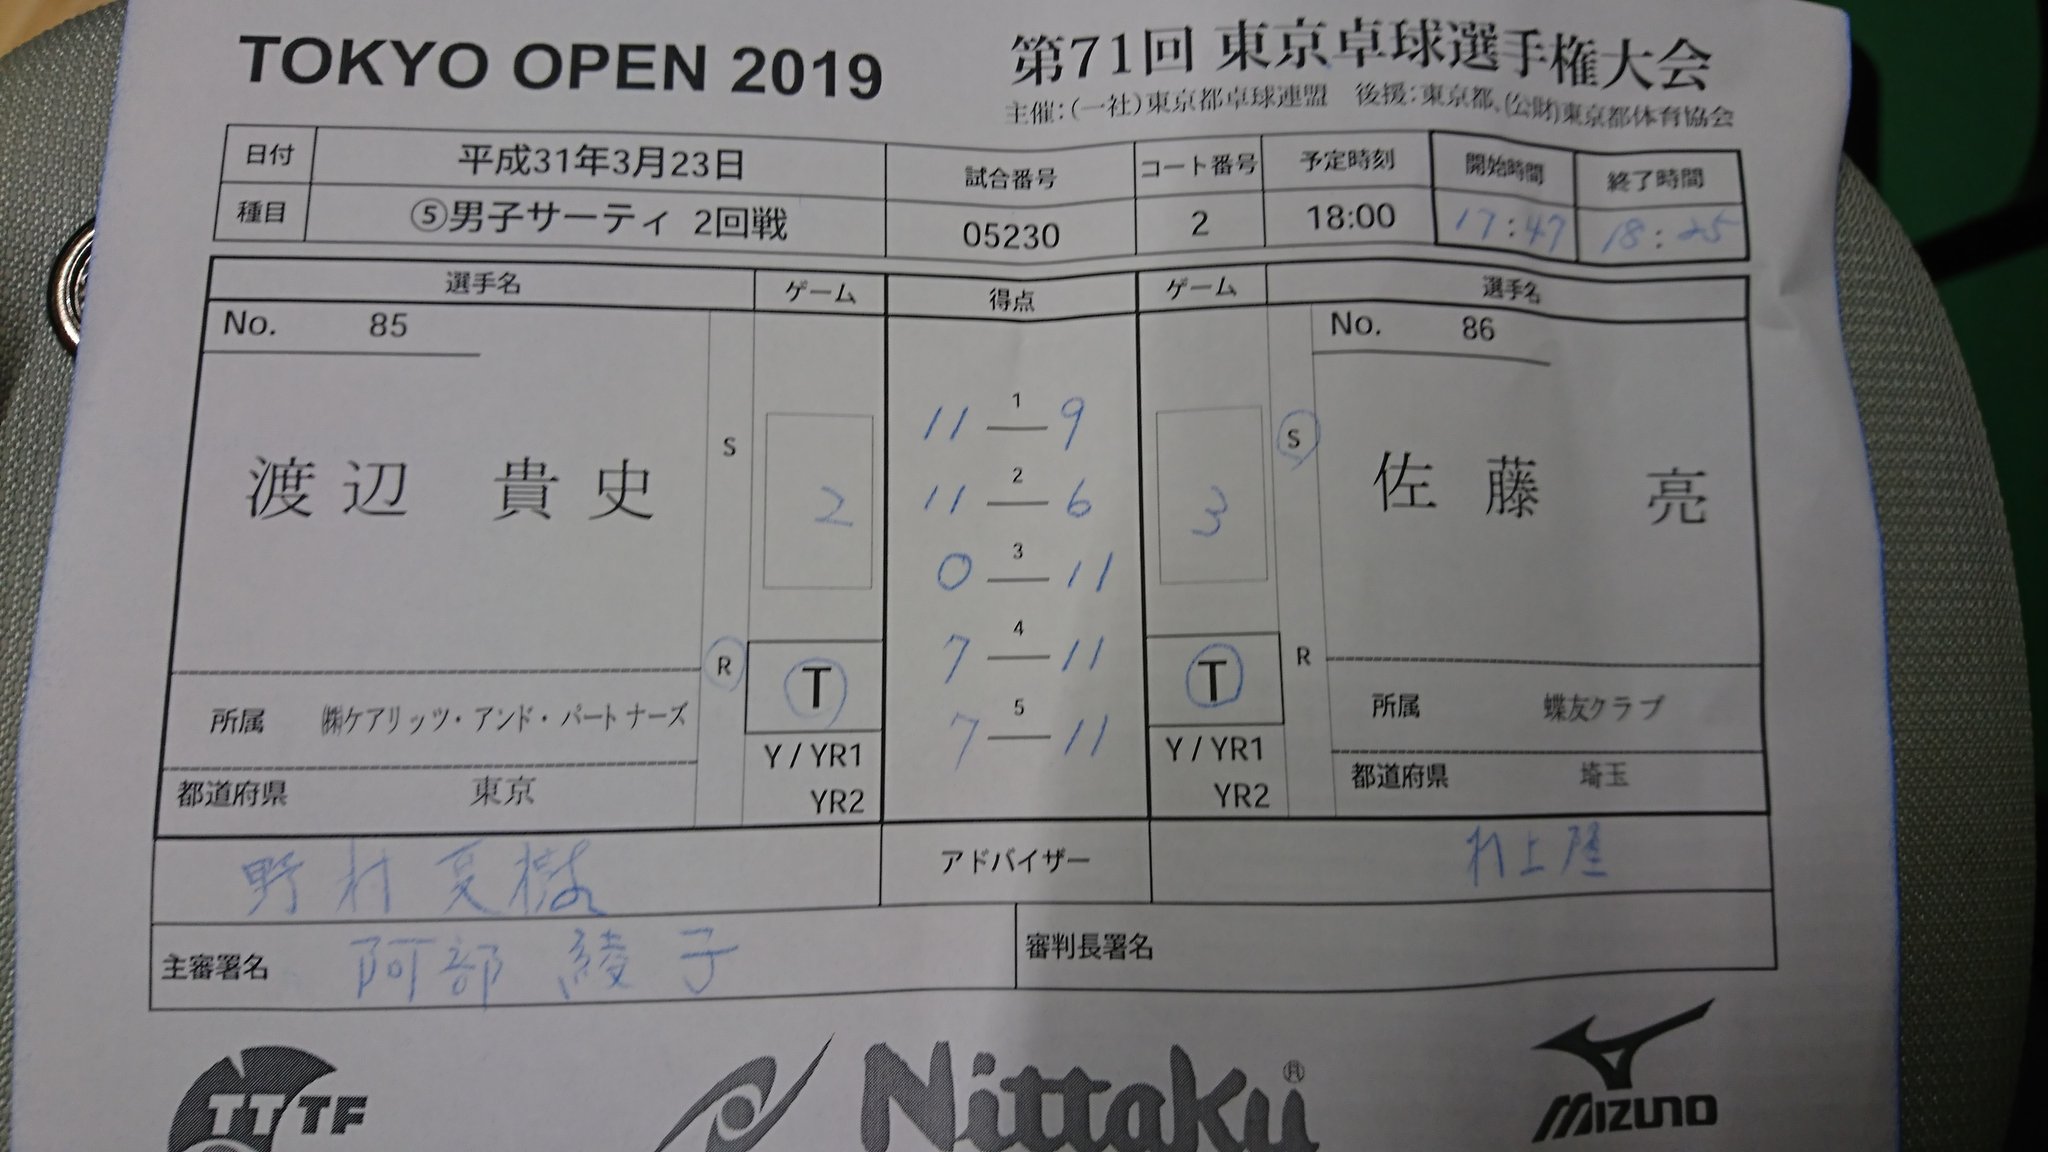 TOKYO OPEN 2019 第71回 東京卓球選手権大会
主催:(一社)東京都卓球連盟 後援:東京都、(公財)東京都体育協会
日付 平成31年3月23日 試合番号 コート番号 予定時刻 開始時間 終了時間
種目 ⑤男子サーティ 2回戦 05230 2 18:00 17:47 18:25
選手名 ゲーム 得点 ゲーム 選手名
No. 85 No. 86
11 1 9
S S
渡辺 貴史 2 11 2 6 3 佐藤 亮
0 3 11
7 4 11
R T T R
所属 ㈱ケアリッツ・アンド・パートナーズ 7 5 11 所属 蝶友クラブ
Y / YR1 Y / YR1
都道府県 東京 YR2 YR2 都道府県 埼玉
野村夏樹 アドバイザー 村上隆
主審署名 阿部 綾子 審判長署名
TTTF Nittaku® MIZUNO